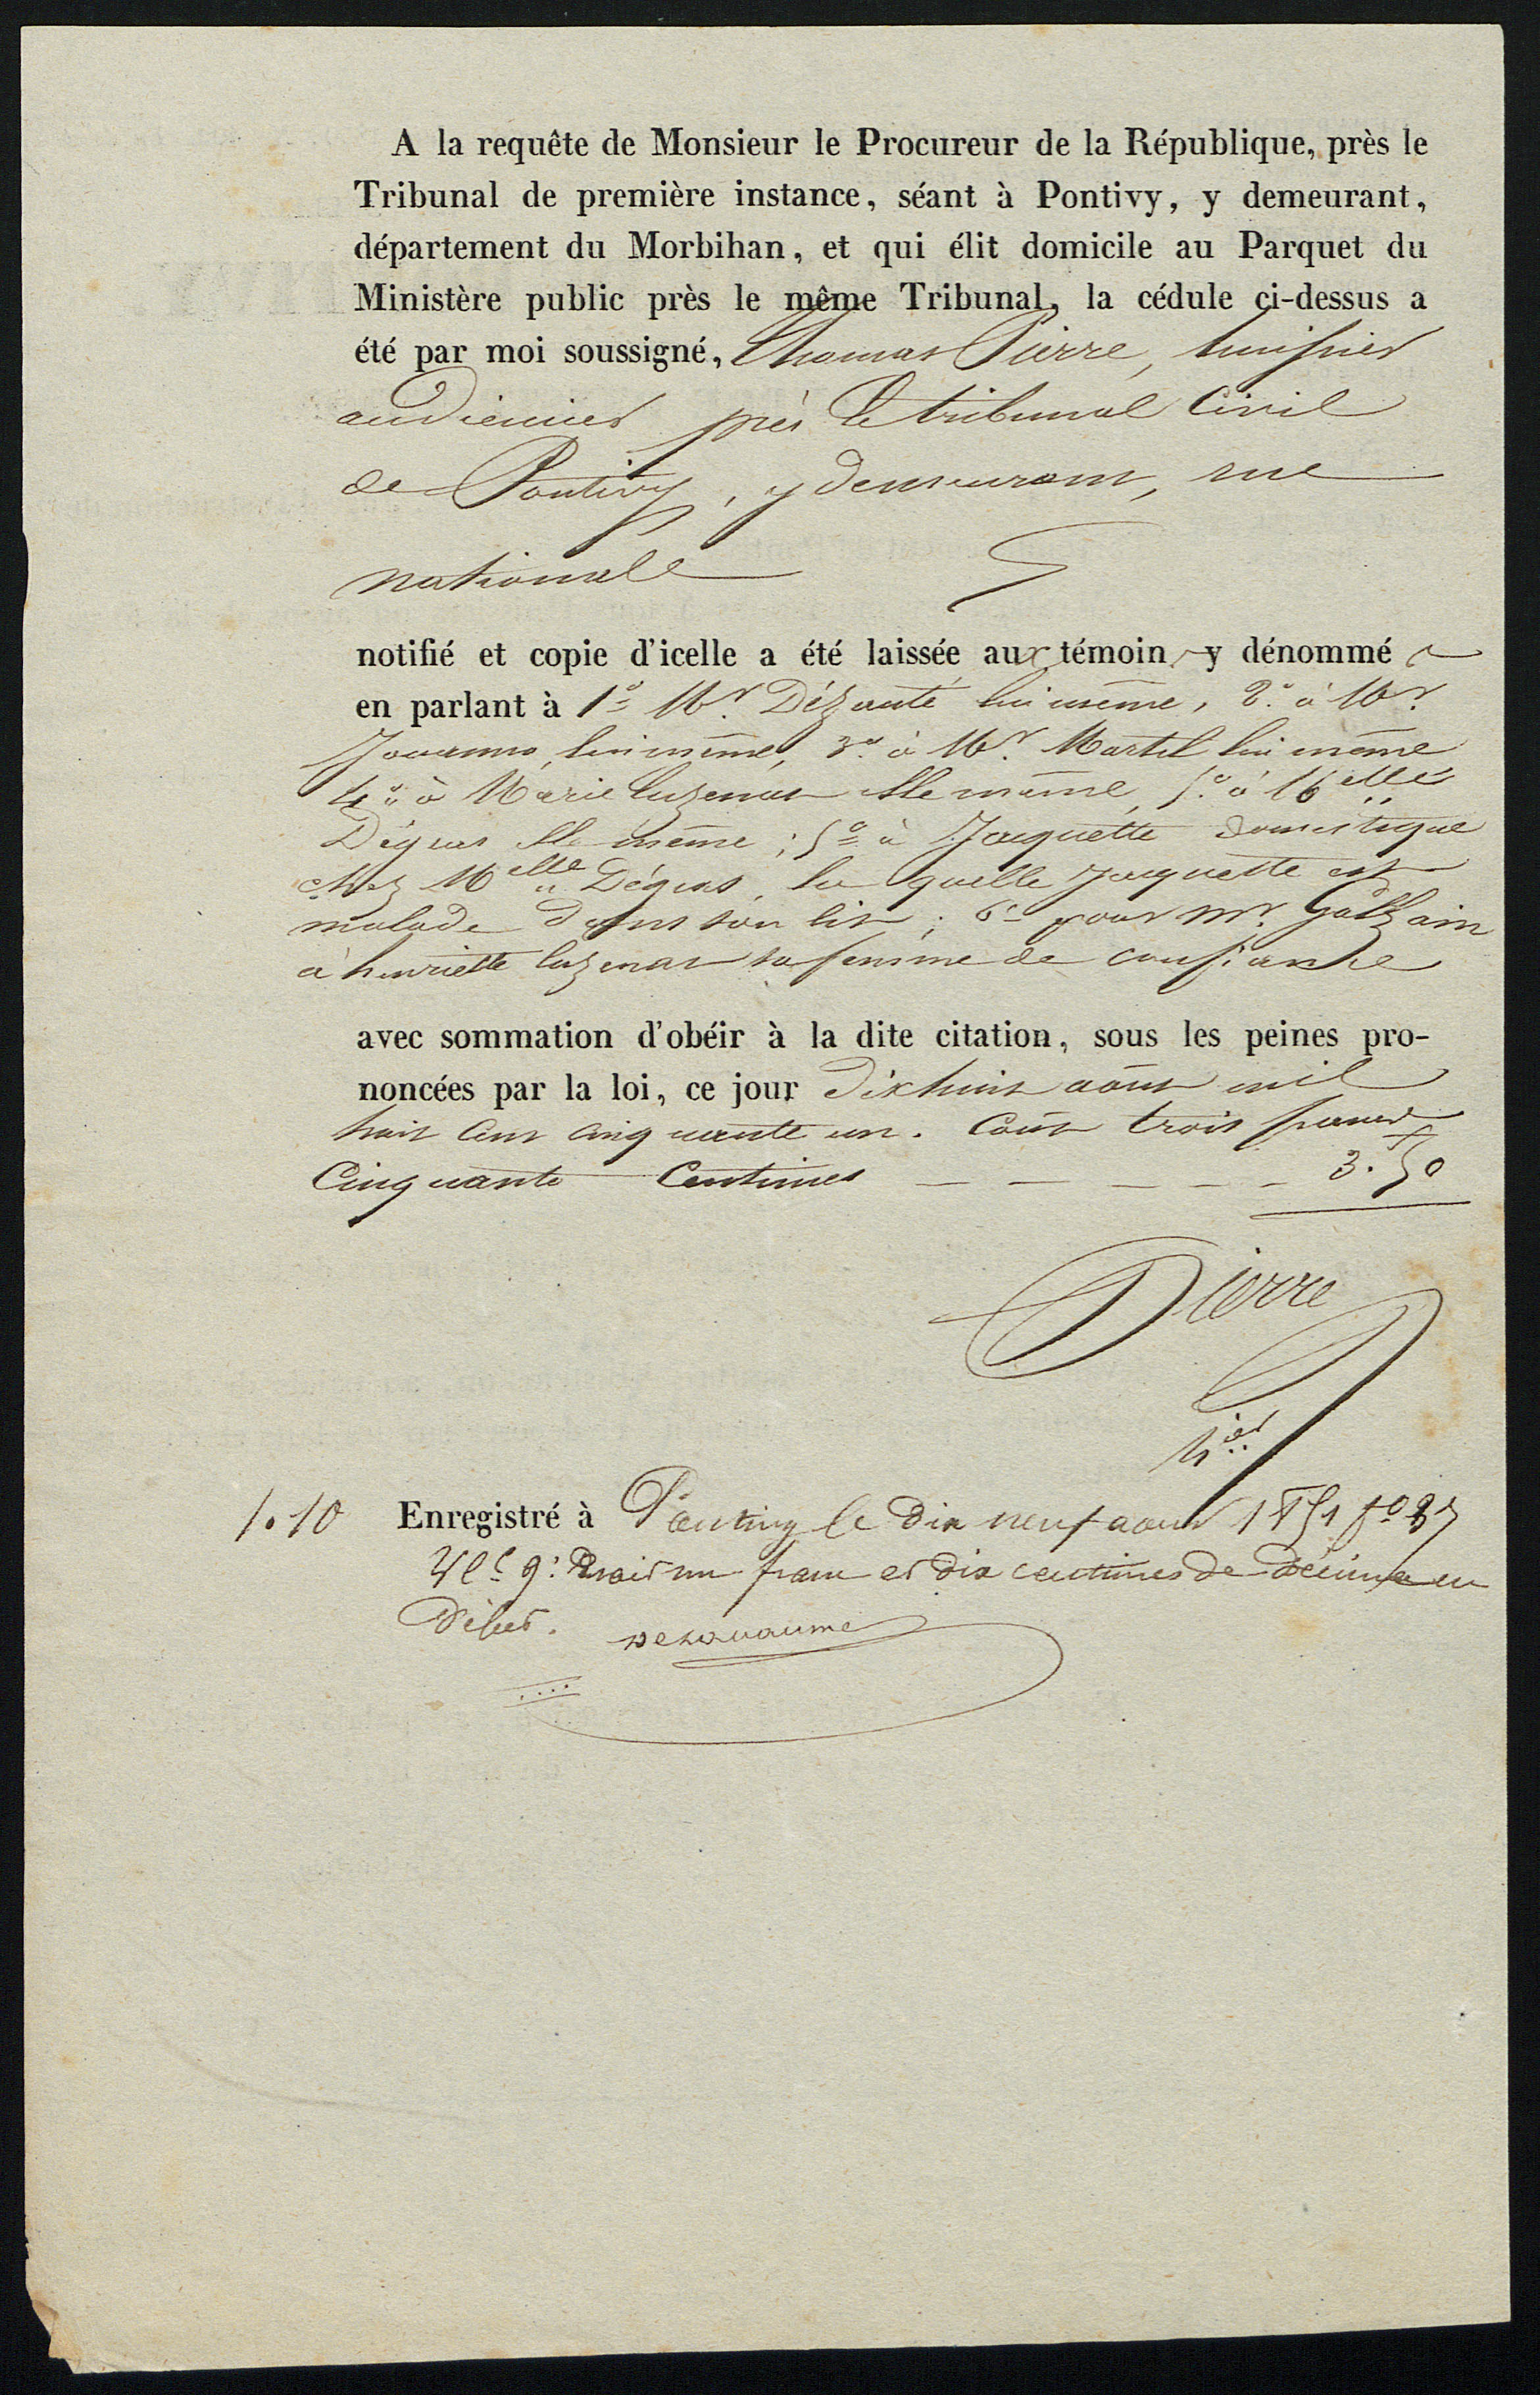 A la requête de Monsieur le Procureur de la République, près le
Tribunal de première instance, séant à Pontivy, y demeurant,
département du Morbihan, et qui élit domicile au Parquet du
Ministère public près le même Tribunal, la cédule ci-dessus a
été par moi soussigné, Thomas Pierre, huissier
audiencier près le tribunal Civil
de Pontivy, y demeurant, rue
nationale
notifié et copie d'icelle a été laissée aux témoins y dénommés
en parlant à 1º Mr. Dézauté lui même, 2º à Mr.
Jouanno, lui même, 3º à Mr. Martel lui même
4º à Marie Luzenas elle même, 5º à Melle
Dégras elle même ; 5º à Jaquette domestique
chez Melle Dégras, la quelle Jaquette est
malade dans son lit ; 6º pour Mr. Galzain
à henriette Luzenas sa femme de confiance
avec sommation d'obéir à la dite citation, sous les peines pro-
noncées par la loi, ce jour dix huit août mil
huit cent cinquante un. Coût trois francs
Cinquante Centimes — — — — — 3.50
Pierre
hier
1.10 Enregistré à Pontivy le dix neuf aout 1851 fo 27
Vo c. 9: Droit un franc et dix centimes de décime en
débet.